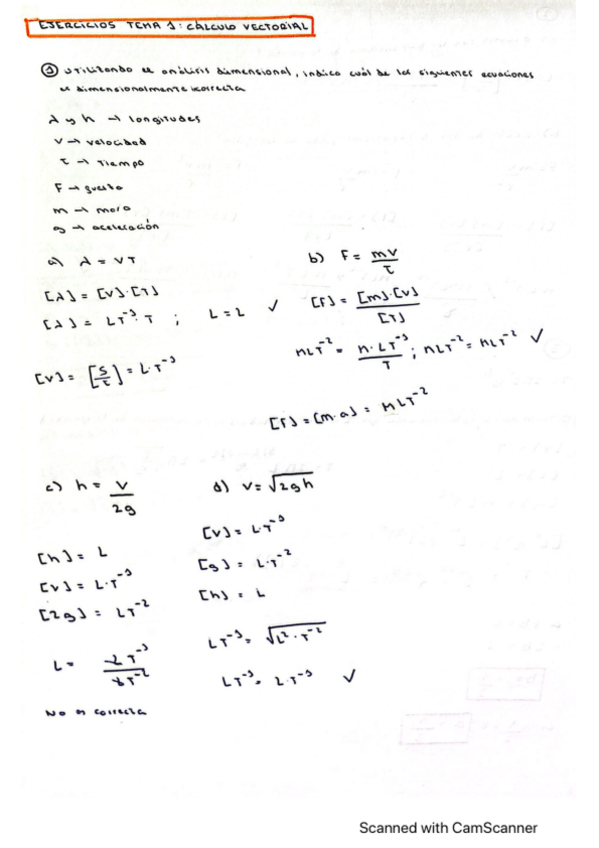 EJERCICIOS TEMA 1: CÁLCULO VECTORIAL
① Utilizando el análisis dimensional, indica cuál de las siguientes ecuaciones
es dimensionalmente incorrecta
λ y h → longitudes
v → velocidad
τ → Tiempo
F → fuerza
m → masa
g → aceleración
a) λ = vT
b) F = mv/τ
[λ] = [v]·[T]
[λ] = LT⁻¹·T ; L = L ✓
[F] = [m]·[v]/[T]
MLT⁻² = M·LT⁻¹/T ; MLT⁻² = MLT⁻² ✓
[v] = [s/τ] = L·T⁻¹
[F] = [m·a] = MLT⁻²
c) h = v/2g
d) v = √2gh
[h] = L
[v] = L·T⁻¹
[2g] = LT⁻²
L = LT⁻¹/LT⁻²
No es correcta
[v] = L·T⁻¹
[g] = L·T⁻²
[h] = L
LT⁻¹ = √L²·T⁻²
LT⁻¹ = L·T⁻¹ ✓
Scanned with CamScanner